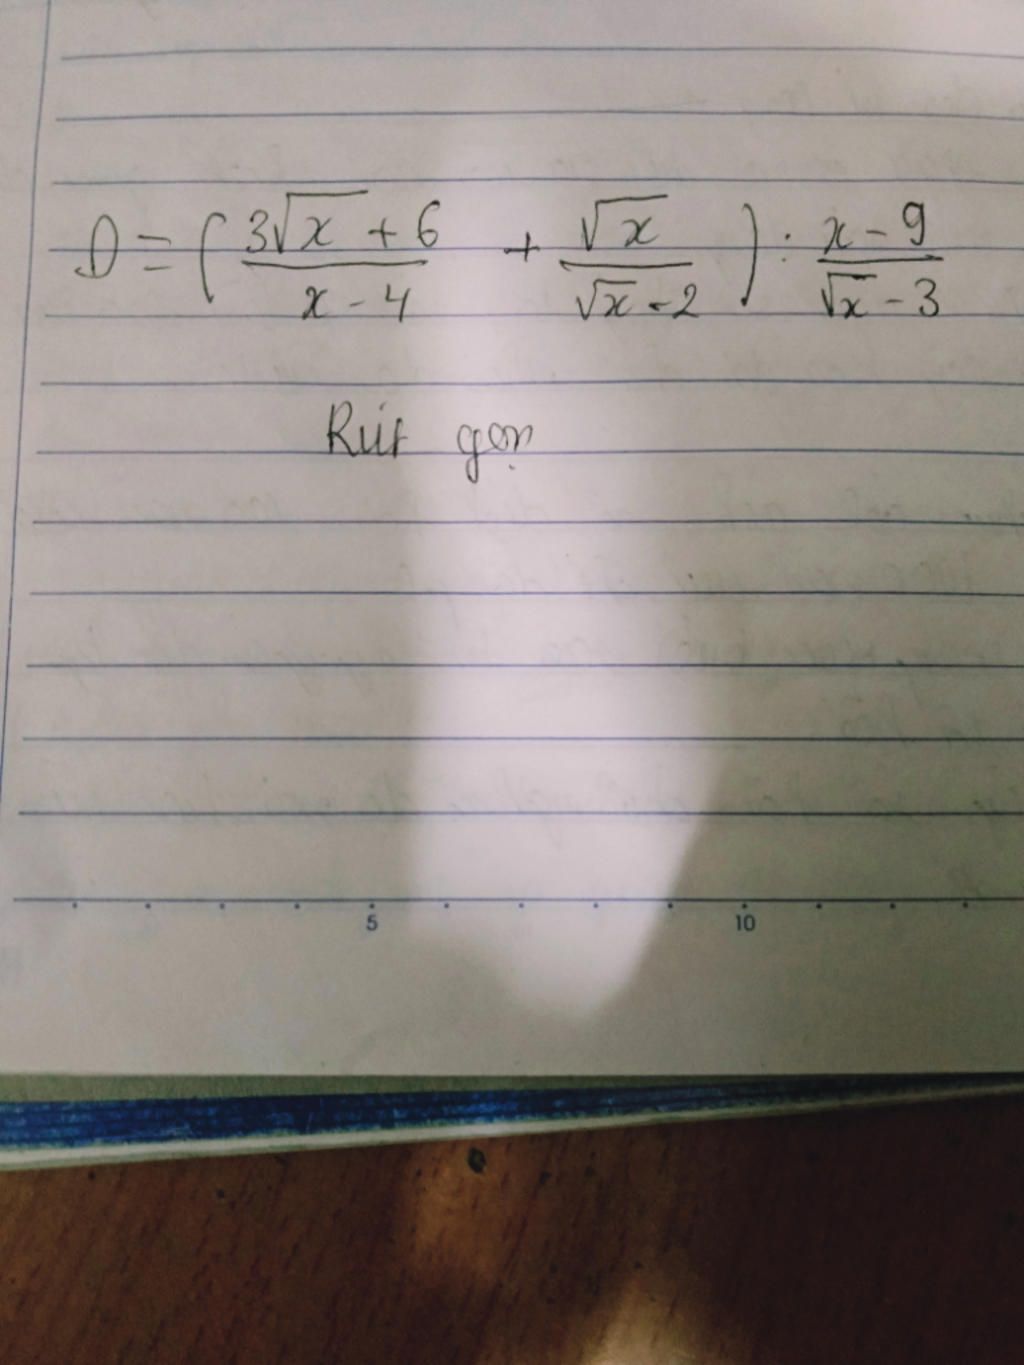 D = ( \frac{3\sqrt{x} + 6}{x - 4} + \frac{\sqrt{x}}{\sqrt{x} - 2} ) : \frac{x - 9}{\sqrt{x} - 3}
Rút gọn
5 10